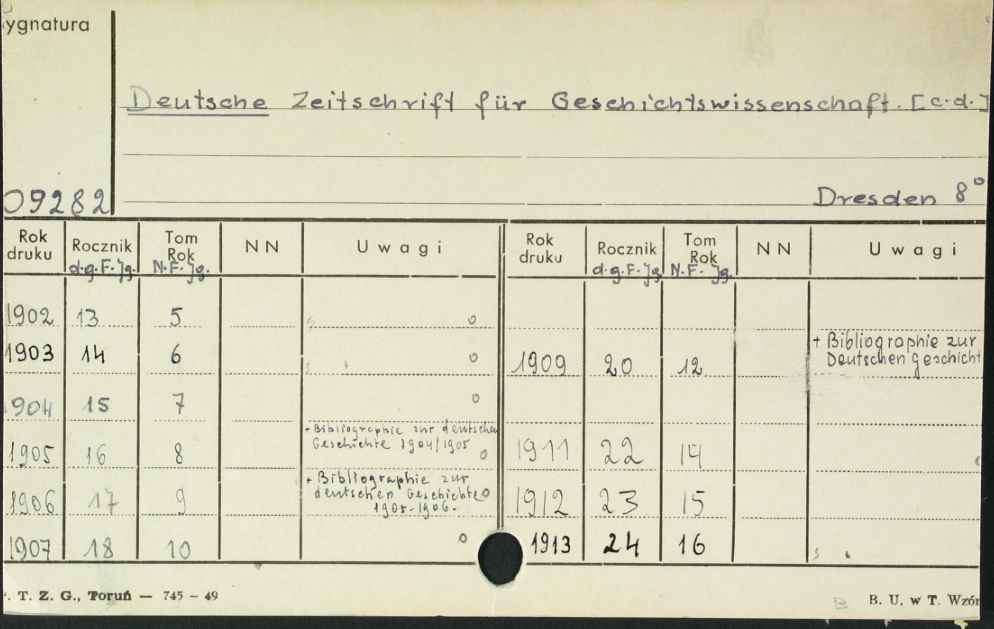 ygnatura
Deutsche Zeitschrift für Geschichtswissenschaft. [c.d.]
09282
Dresden 8°
Rok druku Rocznik d.g.F. Jg. Tom Rok N.F. Jg. NN Uwagi Rok druku Rocznik d.g.F. Jg. Tom Rok N.F. Jg. NN Uwagi
1902 13 5 o
1903 14 6 o 1909 20 12 + Bibliographie zur
Deutschen geschicht
1904 15 7 o
1905 16 8 + Bibliographie zur deutschen
Geschichte 1904/1905 o 1911 22 14
1906 17 9 + Bibliographie zur
deutschen Geschichte o
1905-1906. 1912 23 15
1907 18 10 o 1913 24 16
. T. Z. G., Toruń — 745 – 49
B. U. w T. Wzór